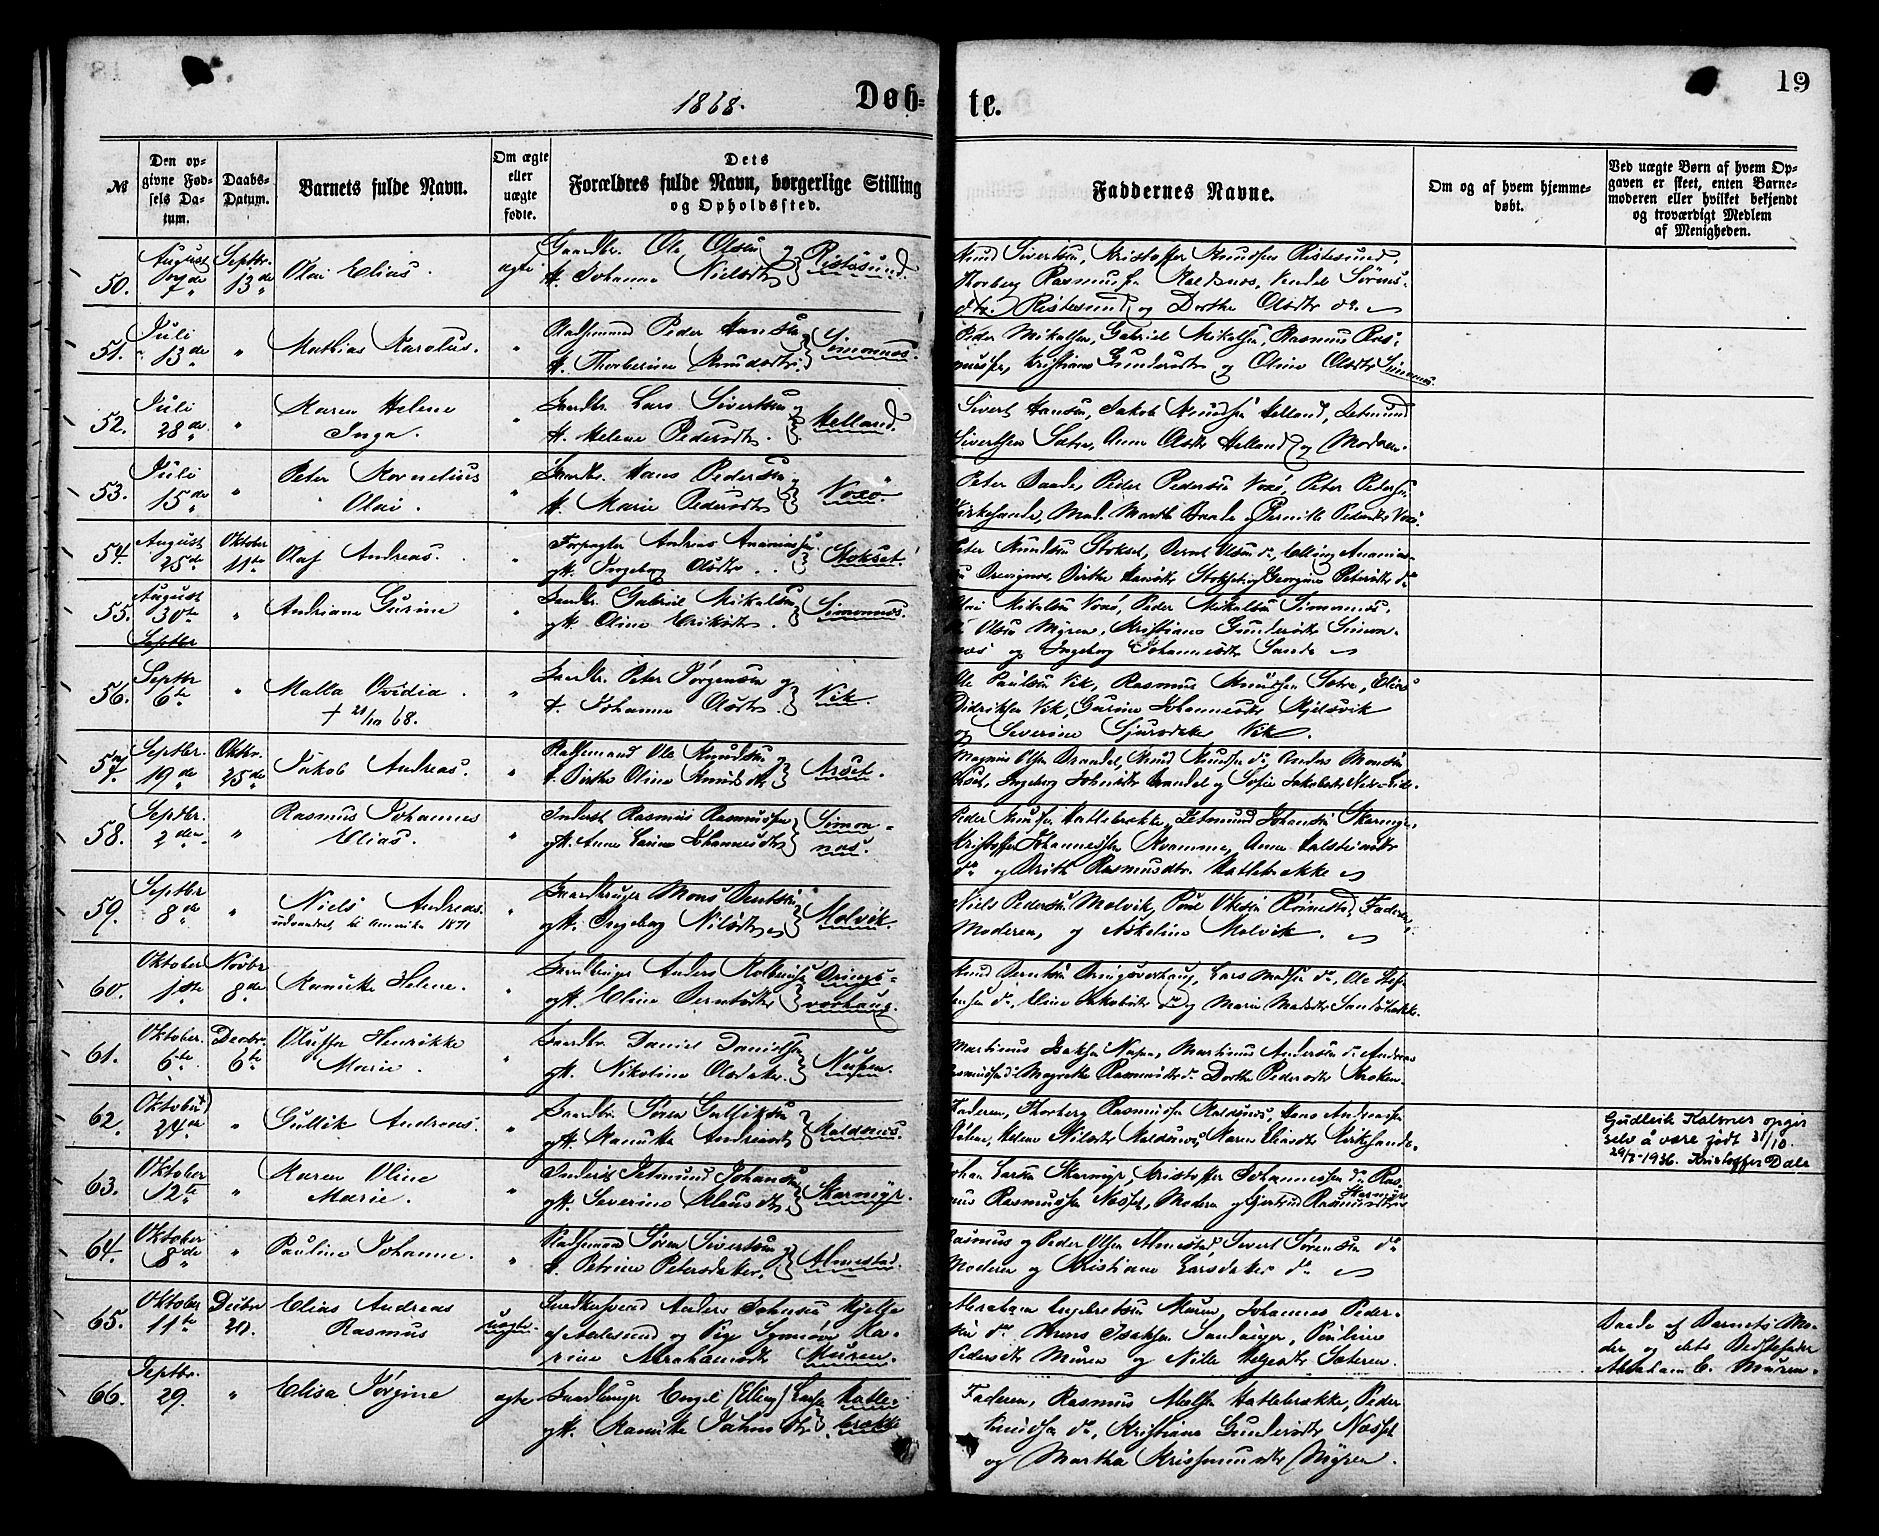 19
1868.
Døb-
te.
№
Den op-
givne Fød-
sels Da-
tum.
Daabs-
Datum.
Barnets fulde Navn.
Om ægte
eller
uægte
fødte.
Dets
Forældres fulde Navn, borgerlige Stilling
og Opholdssted.
Faddernes Navne.
Om og af hvem hjemme-
døbt.
Ved uægte Børn af hvem Op-
gaven er skeet, enten Barne-
moderen eller hvilket bekjendt
og troværdigt Medlem
af Menigheden.
50.
August
7de
Septbr.
13de
Olai Elias.
ægte
Gaardbr. Ole Olsen og
H. Johanne Nielsdtr
Ristesund.
Sivertsen, Kristoffer Knudsen Ristesund,
Thorberg Rasmussen Kaldsnes,
Ristesund og Dorthe Olsdtr do
51.
Juli
13de
"
Mathias Karolus.
"
Peder Hansen
H. Thorberine Knudsdtr.
Simonnes.
Peder Mikalsen, Gabriel Mikalsen, Rasmus Ras-
Kristiane Gundersdtr og Oline Olsdtr Simonnes
52.
Juli
28de
"
Karen Helene
Inga.
"
Gaardbr. Lars Sivertsen og
H. Helene Pedersdtr.
Helland.
Sivert Hansen, Jakob Knudsen Helland, Ietmund
Sivertsen Sætre, Anne Olsdtr Helland og Moderen.
53.
Juli
15de
"
Peter Kornelius
Olai.
"
Gaardbr. Hans Pedersen og
H. Marie Pedersdtr
Voxö.
Peter Saade, Peder Pedersen Voxö, Peter Pedersen
Kirkesande, Mad. Marthe og Pernille Pedersdtr Voxö.
54.
August
25de
Oktober
11te
Olaf Andreas.
"
Forpagter Andreas Ananiassen
gk. Ingeborg Olsdtr.
Stokset.
Peter Knudsen Stokset, Bernt Olsen do, Elling Ananias-
Birthe Hansdtr Stokset og Georgine Petersdtr do
55.
August
30te
"
Andriane Gurine
"
Gaardbr. Gabriel Mikalsen
gk. Oline Eriksdtr.
Simonnes.
Olai Mikalsen Voxö, Peder Mikalsen Simonnes,
Olsen Myren, Kristiane Gundersdtr Simon-
nes og Ingeborg Johannesdtr Sande
Septbr
56.
Septbr
6te
"
Malla Ovidia.
† 21/10 68.
"
Gaardbr. Peter Jörgensen og
H. Johanne Olsdtr.
Vik.
Ole Paulsen Vik, Rasmus Knudsen Sætre, Elias
Didriksen Vik, Gurine Johannesdtr Kjelsvik
og Severine Sjursdatr Vik.
57.
Septbr.
19de
Oktbr.
25de
Jakob Andreas.
"
Ole Knudsen og
H. Birthe Oline Knudsdtr
Arset.
Magnus Olsen Brandal, Knud Knudsen do, Anders Monsen
Aarset, Ingeborg Johnsdtr Brandal og Sofie Jakobsdtr
58.
Septbr.
2den
"
Rasmus Johannes
Elias.
"
Inderst Rasmus Rasmussen
gk. Anne Carine Johannesdtr
Simon-
nes.
Peder Knudsen Hatlebrække, Ietmund Johansen Skarmyr,
Kristoffer Johannessen Kvamme, Anne
do og Brith Rasmusdtr. Hatlebrække
59.
Septbr
8de
"
Niels Andreas.
udvandret til Amerika 1871
"
Gaardbruger Mons Berntsen
gk. Ingeborg Nilsdtr
Molvik.
Niels Pedersen Molvik, Poul Rönnestad, Faderen,
Moderen, og Askeline Molvik.
60.
Oktober
1ste
Novbr
8de
Ramikke Helene.
"
Gaardbruger Anders Kolbeinsen
gk. Eline Berntsdtr
Drings-
vorhaug.
Knud Berntsen Dringsvorhaug, Lars Madsen do, Ole Stef-
fensen do, Eline Jakobsdtr do og Marie Madsdtr Sandsbække.
61.
Oktober.
6te
Decbr.
6te
Oluffa Henrikke
Marie.
"
Gaardbr. Daniel Danielsen
gk. Nikoline Olsdater.
Nupen.
Martinus Isaksen Nupen, Martinus Andersen do Andreas
Rasmussen do Magrethe Rasmusdtr do Dorthe Pedersdtr Kroken.
62.
Oktober
24de
"
Gullik Andreas.
"
Gaardbr. Sören Gulliksen
gk. Ramikke Andreasdtr
Kaldsnes.
Faderen, Thorberg Rasmussen Kaldsnes, Hans Andreassen
Helene Nilsdtr Kaldsnes, Karen Eliasdtr Kirkesande.
Gudleik Kalsnes opgir
selv å være født 31/10.
29/7-1936. Kristoffer Dale
63.
Oktober
12te
"
Karen Oline
Marie.
"
Inderst Ietmund Johansen
gk. Severine Klausdtr
Skarmyr.
Johan Larsen Skarmyr, Kristoffer Johannessen do Ras-
mus Rasmussen Næsset, Moderen og Gjertrud Rasmusdtr
Skarmyr
64.
Oktober
8de
"
Pauline Johanne.
"
Sören Sivertsen og
H. Petrine Petersdater.
Almestad.
Rasmus og Peder Olsen Almestad, Sivert Sörensen do
Moderen og Kristiane Larsdater do
65.
Oktober
11te
Decbr
20.
Elias Andreas
Rasmus
uægte.
Snedkersvend Anders Johnsen Kjelse
af Aalesund og Pige Synnöve Ka-
rine Abrahamsdtr
Muren.
Abraham Engebretsen Muren, Johannes Peder-
sen do Isaksen Sandviger, Pauline
Pedersdtr Muren og Nille Helgesdtr Sæteren.
Baade af Barnets Mo-
der og dets Bedstefader
Abraham E. Muren.
66.
Septbr.
29.
"
Elisa Jørgine
ægte
Gaardbruger Engel (Elling) Larsen
gk. Ramikke Johnsdtr.
Hatle-
brække
Faderen, Rasmus Hatlebrække, Peder
Knudsen do, Kristiane Gundersdtr Næsset
og Martha Krissmundsdtr Myren.